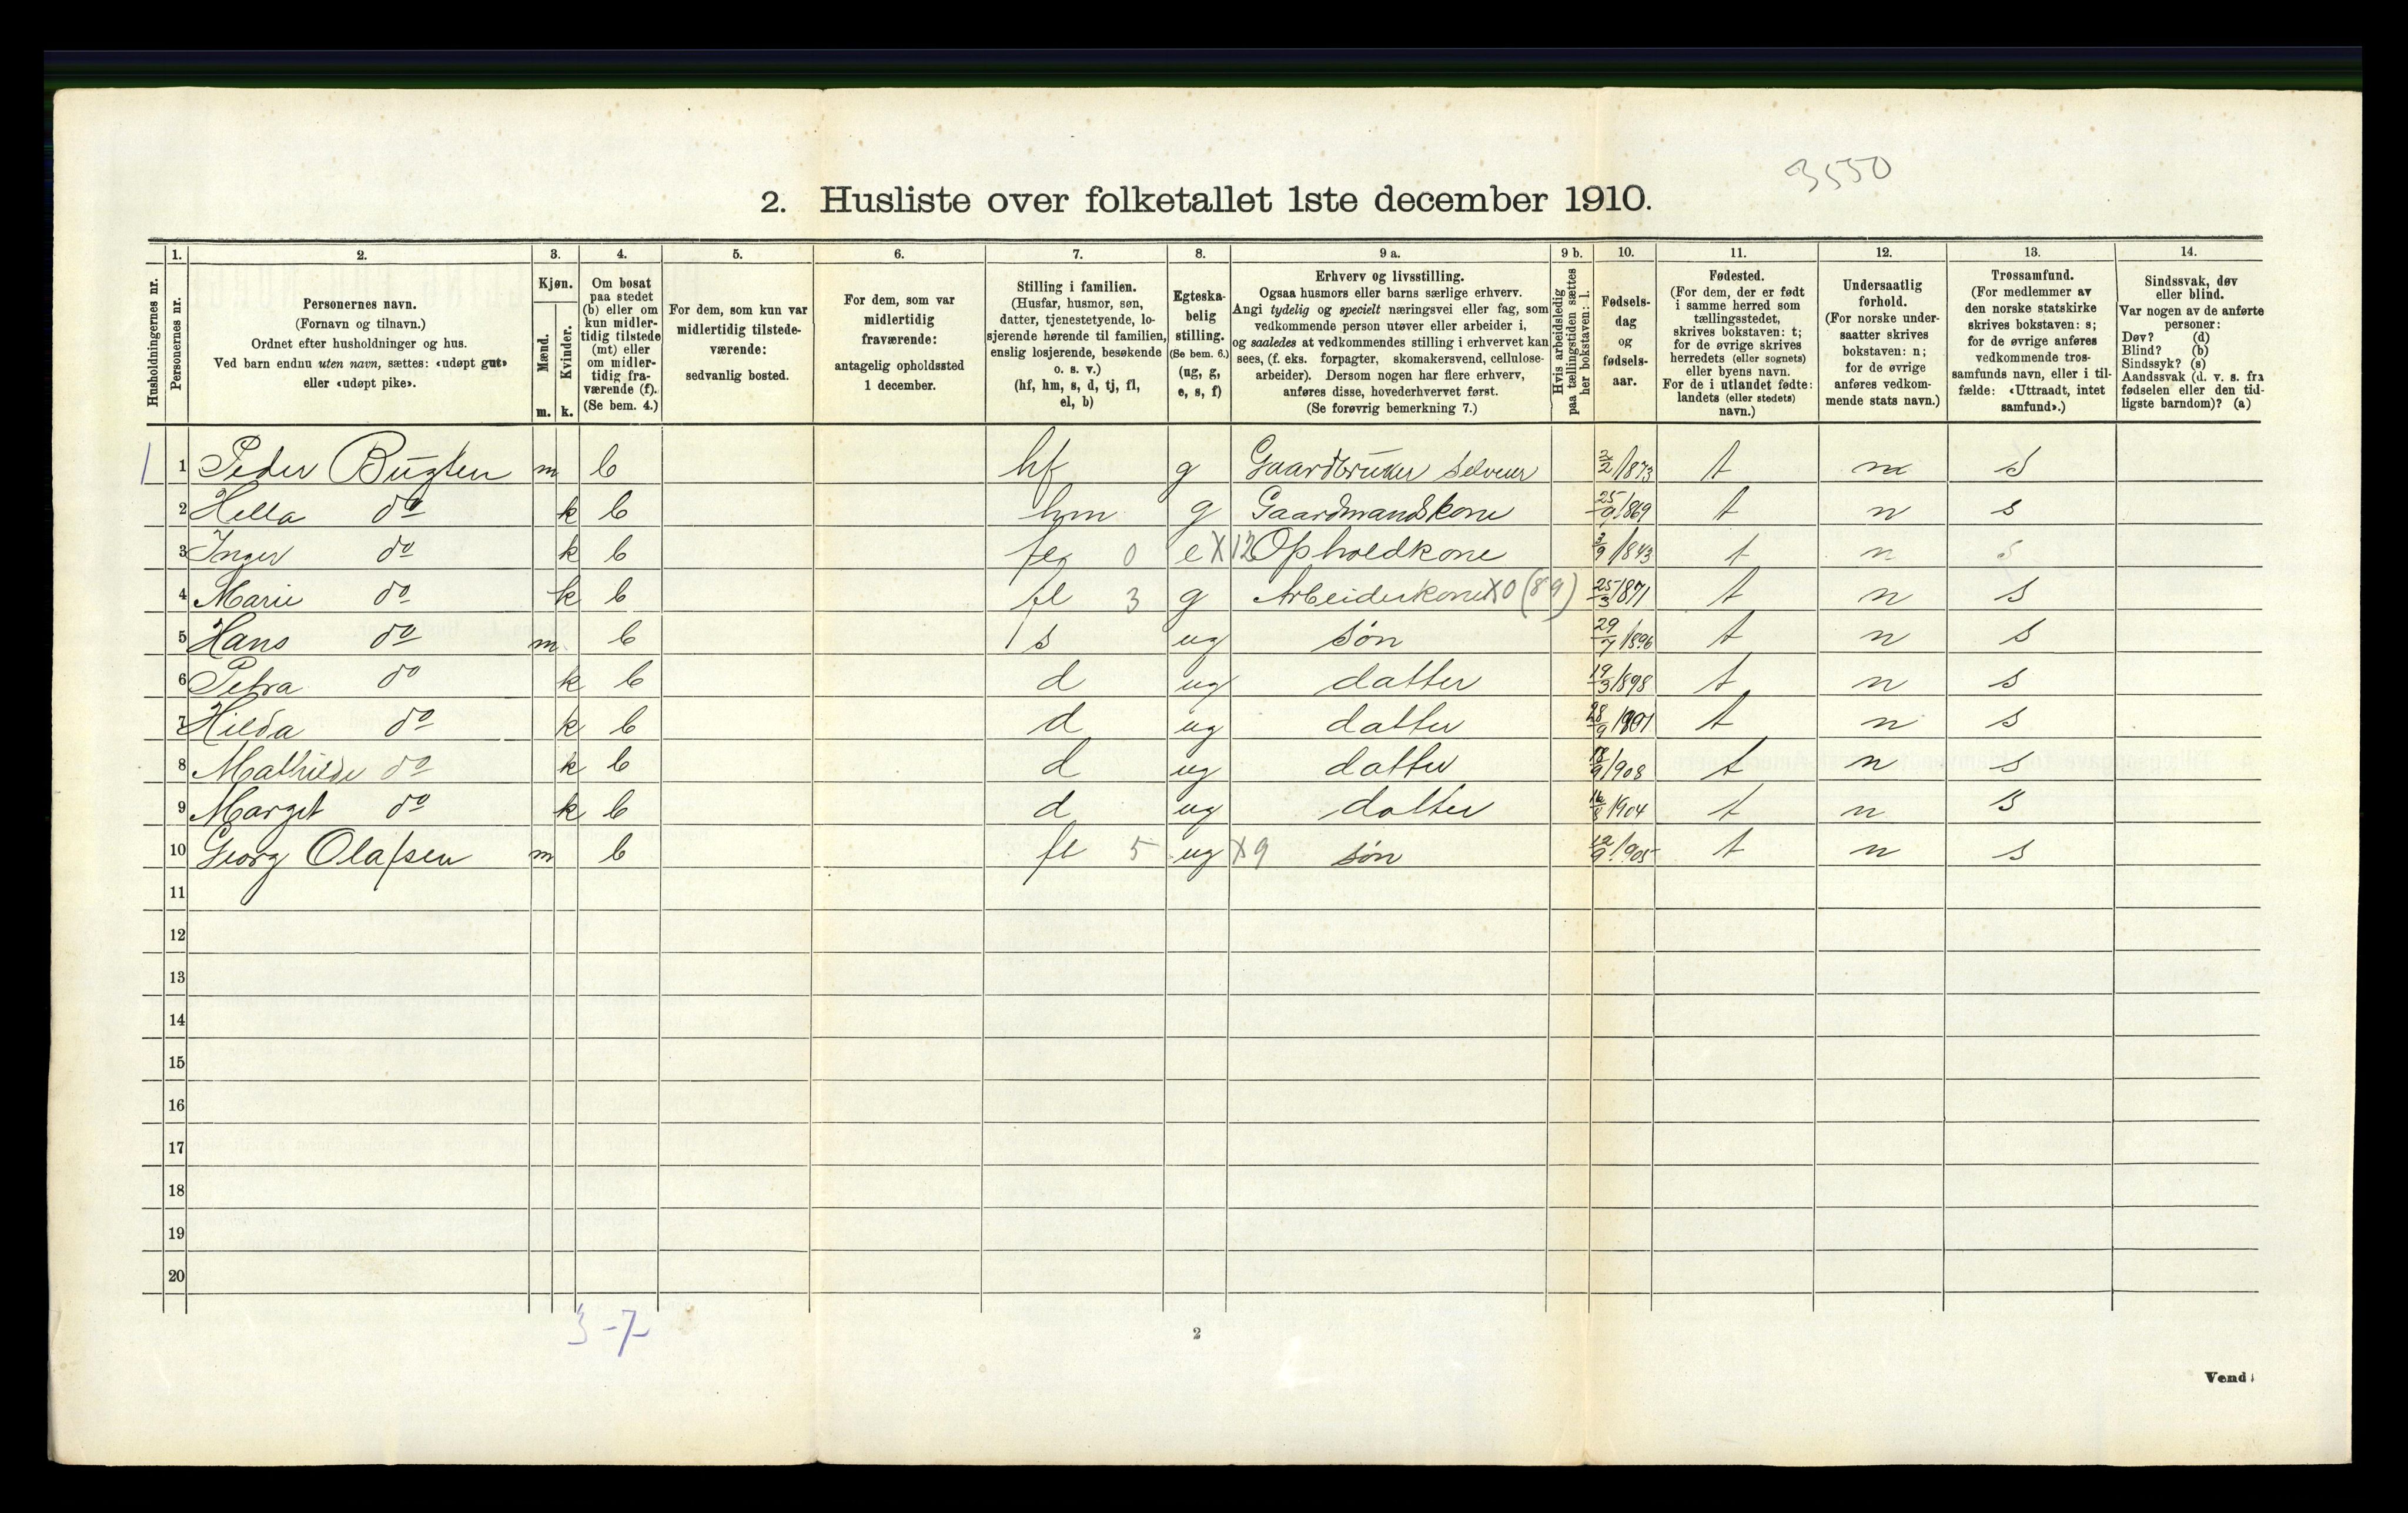 3550
2. Husliste over folketallet 1ste december 1910.
Husholdningernes nr.
1.
Personernes nr.
2.
Personernes navn.
(Fornavn og tilnavn.)
Ordnet efter husholdninger og hus.
Ved barn endnu uten navn, sættes: «udøpt gut»
eller «udøpt pike».
3.
Kjøn.
Mænd.
Kvinder.
m. k.
4.
Om bosat
paa stedet
(b) eller om
kun midler-
tidig tilstede
(mt) eller
om midler-
tidig fra-
værende (f).
(Se bem. 4.)
5.
For dem, som kun var
midlertidig tilstede-
værende:
sedvanlig bosted.
6.
For dem, som var
midlertidig
fraværende:
antagelig opholdssted
1 december.
7.
Stilling i familien.
(Husfar, husmor, søn,
datter, tjenestetyende, lo-
sjerende hørende til familien,
enslig losjerende, besøkende
o. s. v.)
(hf, hm, s, d, tj, fl,
el, b)
8.
Egteska-
belig
stilling.
(Se bem. 6.)
(ug, g,
e, s, f)
9 a.
Erhverv og livsstilling.
Ogsaa husmors eller barns særlige erhverv.
Angi tydelig og specielt næringsvei eller fag, som
vedkommende person utøver eller arbeider i,
og saaledes at vedkommendes stilling i erhvervet kan
sees, (f. eks. forpagter, skomakersvend, cellulose-
arbeider). Dersom nogen har flere erhverv,
anføres disse, hovederhvervet først.
(Se forøvrig bemerkning 7.)
9 b.
Hvis arbeidsledig
paa tællingstiden sættes
her bokstaven: l.
10.
Fødsels-
dag
og
fødsels-
aar.
11.
Fødested.
(For dem, der er født
i samme herred som
tællingsstedet,
skrives bokstaven: t;
for de øvrige skrives
herredets (eller sognets)
eller byens navn.
For de i utlandet fødte:
landets (eller stedets)
navn.)
12.
Undersaatlig
forhold.
(For norske under-
saatter skrives
bokstaven: n;
for de øvrige
anføres vedkom-
mende stats navn.)
13.
Trossamfund.
(For medlemmer av
den norske statskirke
skrives bokstaven: s;
for de øvrige anføres
vedkommende tros-
samfunds navn, eller i til-
fælde: «Uttraadt, intet
samfund».)
14.
Sindssvak, døv
eller blind.
Var nogen av de anførte
personer:
Døv? (d)
Blind? (b)
Sindssyk? (s)
Aandssvak (d. v. s. fra
fødselen eller den tid-
ligste barndom)? (a)
1 1 Peder Bugten m b hf g Gaardbruker selveier 2/2 1873 t n s
2 Hella do k b hm g Gaardmandskone 25/9 1869 t n s
3 Inger do k b fl 0 e X12 Opholdkone 3/9 1843 t n s
4 Marie do k b fl 3 g Arbeiderkone X0 (89) 25/3 1871 t n s
5 Hans do m b s ug søn 29/7 1896 t n s
6 Petra do k b d ug datter 19/3 1898 t n s
7 Hilda do k b d ug datter 28/9 1901 t n s
8 Mathilde do k b d ug datter 18/9 1908 t n s
9 Margit do k b d ug datter 16/8 1904 t n s
10 Georg Olafsen m b fl 5 ug X9 søn 12/9 1905 t n s
11
12
13
14
15
16
17
18
19
20
3-7
2
Vend!